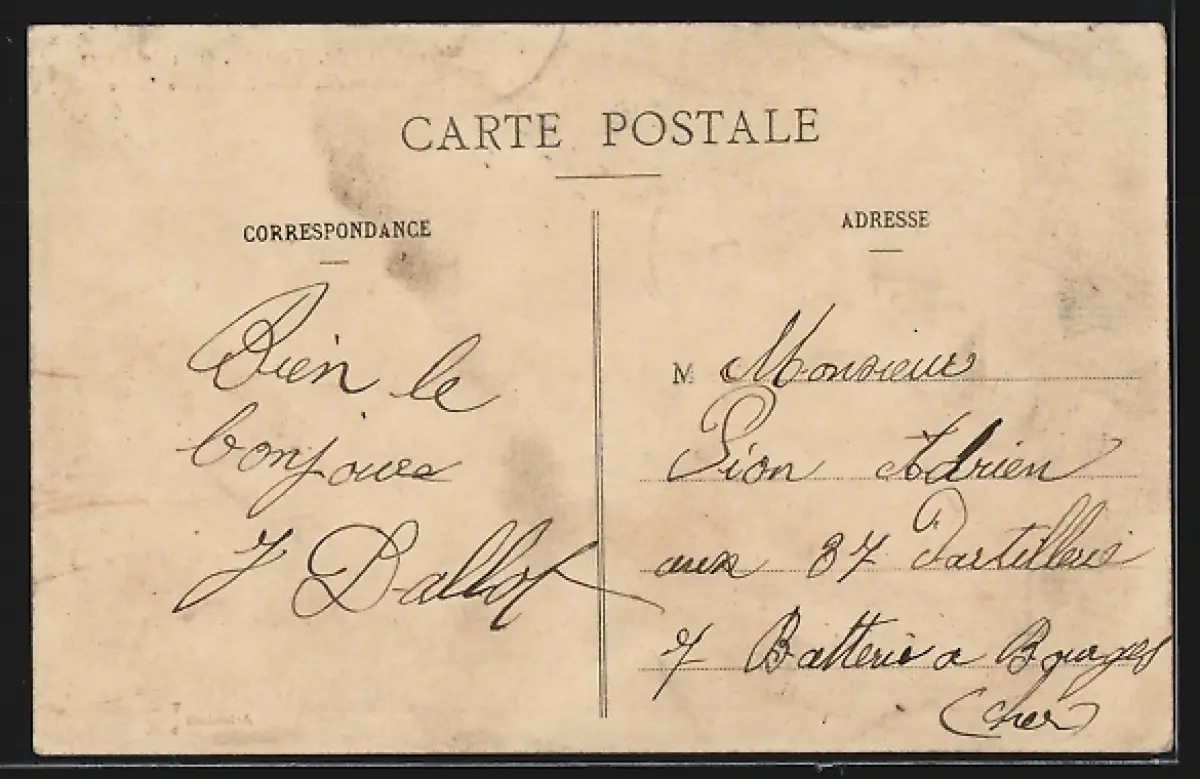 CARTE POSTALE
CORRESPONDANCE
Bien le
bonjour
J Dallot
ADRESSE
M Monsieur
Pion Adrien
aux 37 Dartillerie
7 Batterie a Bourges
Cher